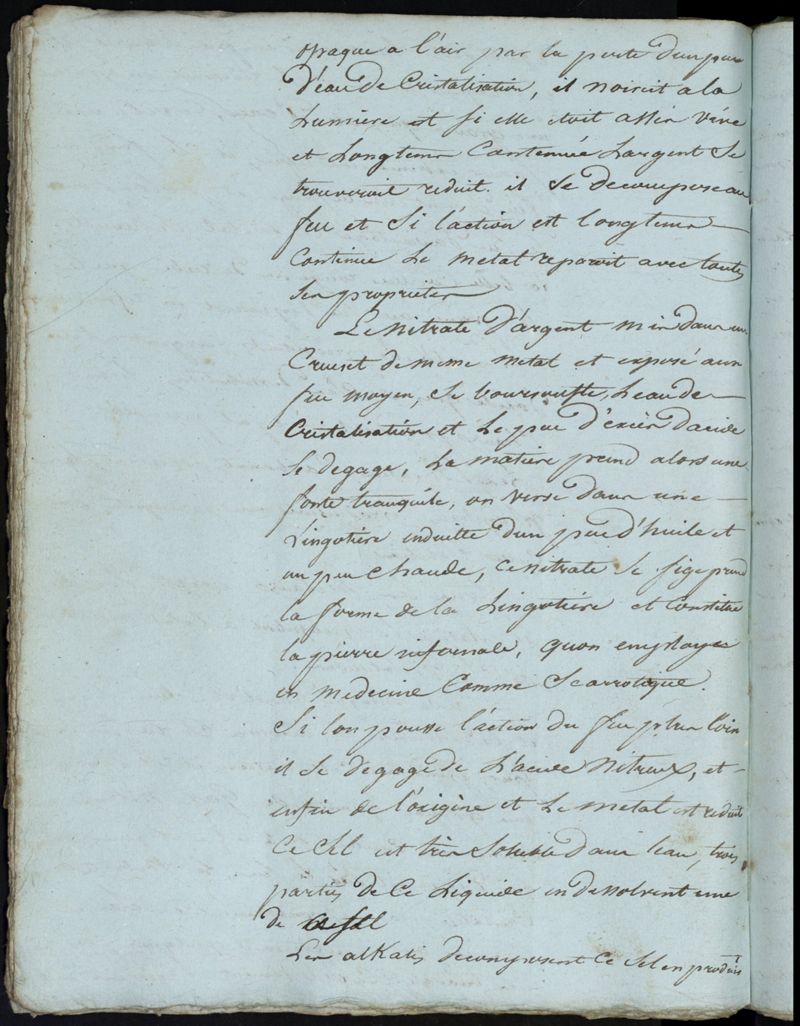 opaque a l'air par la perte d'un peu
D'eau de Cristalisation, il noircit a la
Lumière et si elle etoit assez vive
et Longtems Continuée Largent Se
trouveroit reduit. il Se Decompose au
feu et Si l'action est longtems
Continue Le metal reparoit avec toutes
Ses proprietes
Le Nitrate D'argent mis dans un
Creuset de meme metal et exposé a un
feu moyen, Se boursouffle, Leau de
Cristalisation et Le peu d'exces d'acide
Se degage, La matière prend alors une
fonte tranquile, on verse dans une
Lingotière enduitte d'un peu d'huile et
un peu chaude, ce nitrate Se fige prend
la forme de la Lingotière et Constitue
la pierre infernale, quon employe
en medecine Comme Scarrotique.
Si lon pousse l'action du feu plus loin
il Se degage de L'acide Nitreux, et
enfin de l'oxigène et Le metal est reduit
Ce Sel est très Soluble dans leau, trois
parties de Ce Liquide en dissolvent une
de ce sel
Les alkalis decomposent Ce Sel en produis